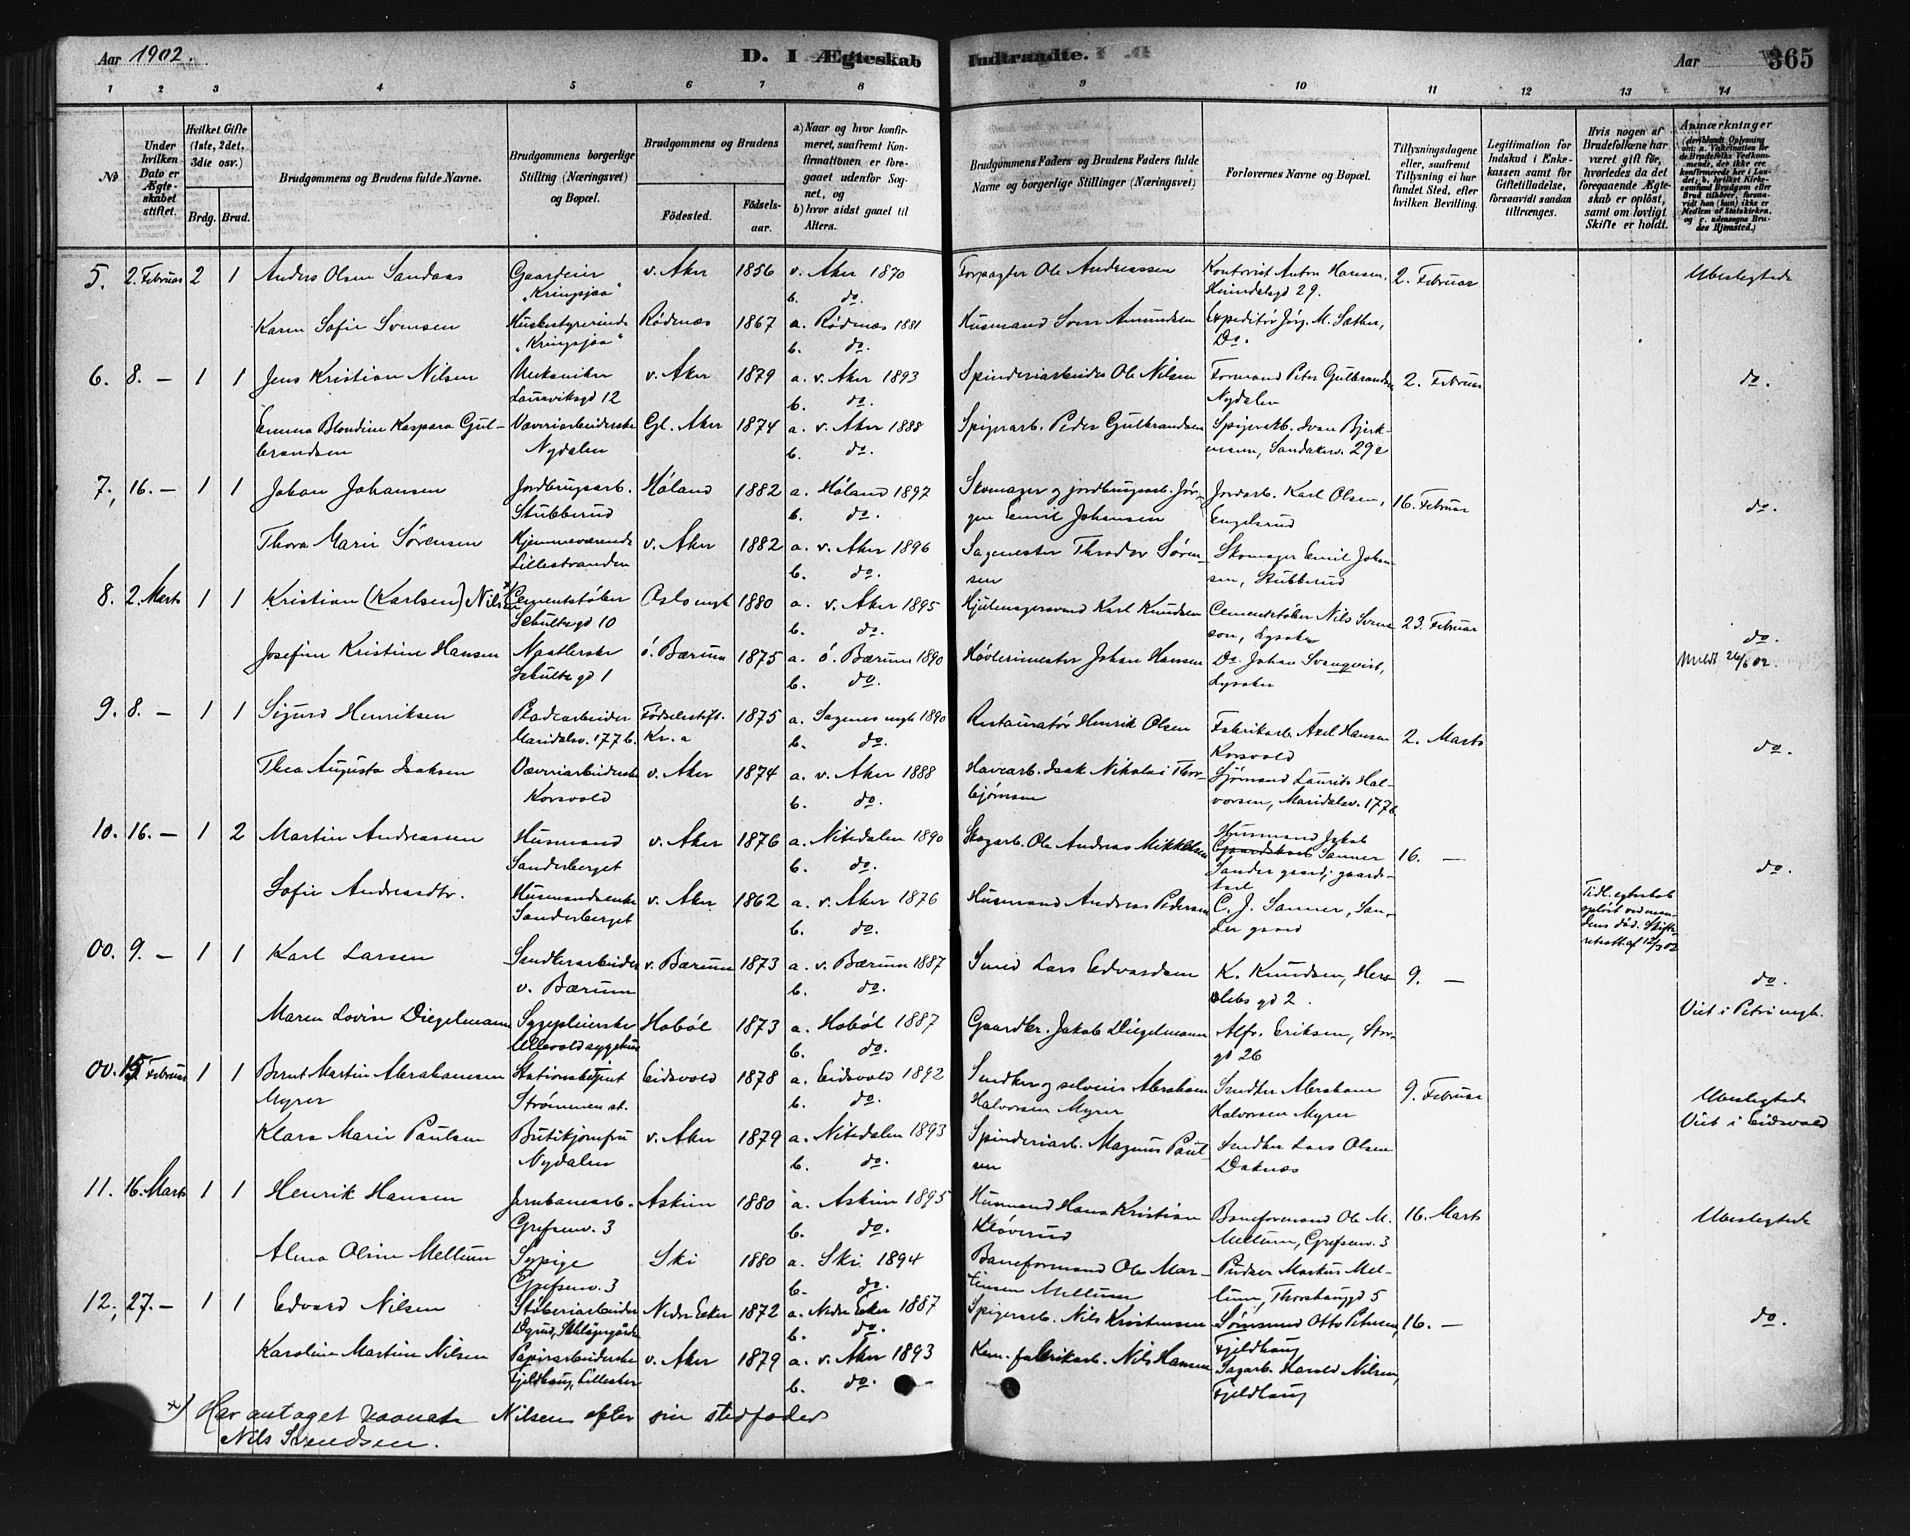 Aar 1902.
D. I Ægteskab Indtraadte.
Aar 365
1 2 3 4 5 6 7 8 9 10 11 12 13 14
No
Under hvilken Dato er Ægteskabet stiftet.
Hvilket Gifte (1ste, 2det, 3die osv.)
Brdg. Brud.
Brudgommens og Brudens fulde Navne.
Brudgommens borgerlige Stilling (Næringsvei) og Bopæl.
Brudgommens og Brudens
Födested. Födsels-aar.
a) Naar og hvor konfirmeret, saafremt Konfirmationen er foregaaet udenfor Sognet, og
b) hvor sidst gaaet til Alters.
Brudgommens Faders og Brudens Faders fulde Navne og borgerlige Stillinger (Næringsvei)
Forlovernes Navne og Bopæl.
Tillysningsdagene eller, saafremt Tillysning ei har fundet Sted, efter hvilken Bevilling.
Legitimation for Indskud i Enkekassen samt for Giftetilladelse, forsaavidt saadan tiltrænges.
Hvis nogen af Brudefolkene har været gift før, hvorledes da det foregaaende Ægteskab er oplöst, samt om lovligt Skifte er holdt.
Anmærkninger
5. 2. Februar 2 1 Anders Olsen Sandaas Gaardeier "Kringsjaa" v. Aker 1856 v. Aker 1870 b. do. Forpagter Ole Andreassen Kontorist Anton Hansen, 29. 2. Februar Ubeslegtede
Karen Sofie Svensen Husbestyrerinde "Kringsjaa" Rödenæs 1867 a. Rödenæs 1881 b. do. Husmand Sven Amundsen Expeditör Jörg. M. Sæther, Do.
6. 8. — 1 1 Jens Kristian Nilsen Mekaniker Laurviksgd 12 v. Aker 1879 a. v. Aker 1893 b. do. Spinderiarbeider Ole Nilsen Formand Peter Gulbrandsen Nydalen 2. Februar do.
Emma Blondine Kaspara Gulbrandsen Væveriarbeiderske Nydalen Gl. Aker 1874 a. v. Aker 1888 b. do. Spigerarb. Peder Gulbrandsen Spigerarb. Ivan Bjerkmann, Sandakerv. 29
7. 16. — 1 1 Johan Johansen Jordbrugsarb. Stubberud Höland 1882 a. Höland 1897 b. do. Skomager og jordbrugsarb. Jörgen Emil Johansen Jordarb. Karl Olsen, Engelsrud 16. Februar do.
Thora Marie Sørensen Hjemmeværende Lillestranden v. Aker 1882 a. v. Aker 1896 b. do. Sagmester Theodor Sørensen Skomager Emil Johansen, Stubberud
8. 2. Marts 1 1 Kristian (Karlsen) Nilsen x) Cementstöber Schultzgd 10 Oslo mgh 1880 a. v. Aker 1895 b. do. Hjulmagersvend Karl Knudsen Cementstöber Nils Svensson, Lysaker 23. Februar do.
Josefine Kristine Hansen Schultzgd 1 ö. Bærum 1875 a. ö. Bærum 1890 b. do. Høvlerimester Johan Hansen Do. Johan Svanqvist, Lysaker Meldt 26/6 02.
9. 8. — 1 1 Sigurd Henriksen Pladearbeider Maridalsv. 177 b. Födselsstift. Kr.a 1875 a. Sagenes mgh 1890 b. do. Restauratör Henrik Olsen Fabrikarb. Axel Hansen Korsvold 2. Marts do.
Thea Augusta Isaksen Væveriarbeiderske Korsvold v. Aker 1874 a. v. Aker 1888 b. do. Havearb. Isak Nikolai Thorbjörnsen Sjömand Laurits Halvorsen, Maridalsv. 177 b
10. 16. — 1 2 Martin Andreassen Husmand Sanderberget v. Aker 1876 a. Nitedalen 1890 b. do. Skogarb. Ole Andreas Mikkelsen Husmand Jakob Sanner Sander gaard; gaardskarl 16. — do.
Sofie Andreasdtr. Husmandsenke Sanderberget v. Aker 1862 a. v. Aker 1876 b. do. Husmand Andreas Pedersen C. J. Sanner, Sander gaard Tidl. egteskab oplöst ved mandens död. Skifteretsatt. af 12/3 02
00. 9. — 1 1 Karl Larsen Snedkerarbeider v. Bærum v. Bærum 1873 a. v. Bærum 1887 b. do. Smed Lars Edvardsen K. Knudsen, Herslebs gd 2. 9. — do.
Maren Lovise Diegelmann Sygepleierske Ullevold sygehus Hobøl 1873 a. Hobøl 1887 b. do. Gaardbr. Jakob Diegelmann Alfr. Eriksen, Storgd 26 Viet i Petri mgh.
00. 15 Februar 1 1 Bernt Martin Abrahamsen Myrer Stationsbetjent Strømmen st. Eidsvold 1878 a. Eidsvold 1892 b. do. Snedker og selveier Abraham Halvorsen Myrer Snedker Abraham Halvorsen Myrer 9. Februar Ubeslegtede
Klara Marie Paulsen Butikjomfru Nydalen v. Aker 1879 a. Nitedalen 1893 b. do. Spinderiarb. Magnus Paulsen Snedker Lars Olsen Viet i Eidsvold
11. 16. Marts 1 1 Henrik Hansen Jernbanearb. Grefsenv. 3 Askim 1880 a. Askim 1895 b. do. Husmand Hans Kristian Kløverud Baneformand Ole M. Mellum, Grefsenv. 3 16. Marts Ubeslegtede
Alma Oline Mellum Sypige Grefsenv. 3 Ski 1880 a. Ski 1894 b. do. Baneformand Ole Martinsen Mellum Pudser Markus Mellum, Thorshauggd 5
12. 27. — 1 1 Edvard Nilsen Støberiarbeider Nedre Eker 1872 a. Nedre Eker 1887 b. do. Spigerarb. Nils Kristensen Otto Petersen, Fjeldhaug 16. — do.
Karoline Martine Nilsen Papirarbeiderske Fjeldhaug, Lilleaker v. Aker 1879 a. v. Aker 1893 b. do. Kem. fabrikarb. Nils Hansen Sagarb. Harald Nilsen, Fjeldhaug
x) Har antaget navnet Nilsen efter sin stedfader
Nils Svendsen.